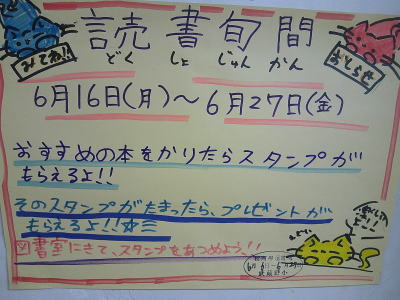 みてね!!
読書旬間
どくしょじゅんかん
6月16日(月)～6月27日(金)
おすすめの本をかりたらスタンプが
もらえるよ!!
そのスタンプがたまったら、プレゼントが
もらえるよ!!
図書室にきて、スタンプをあつめよう!!